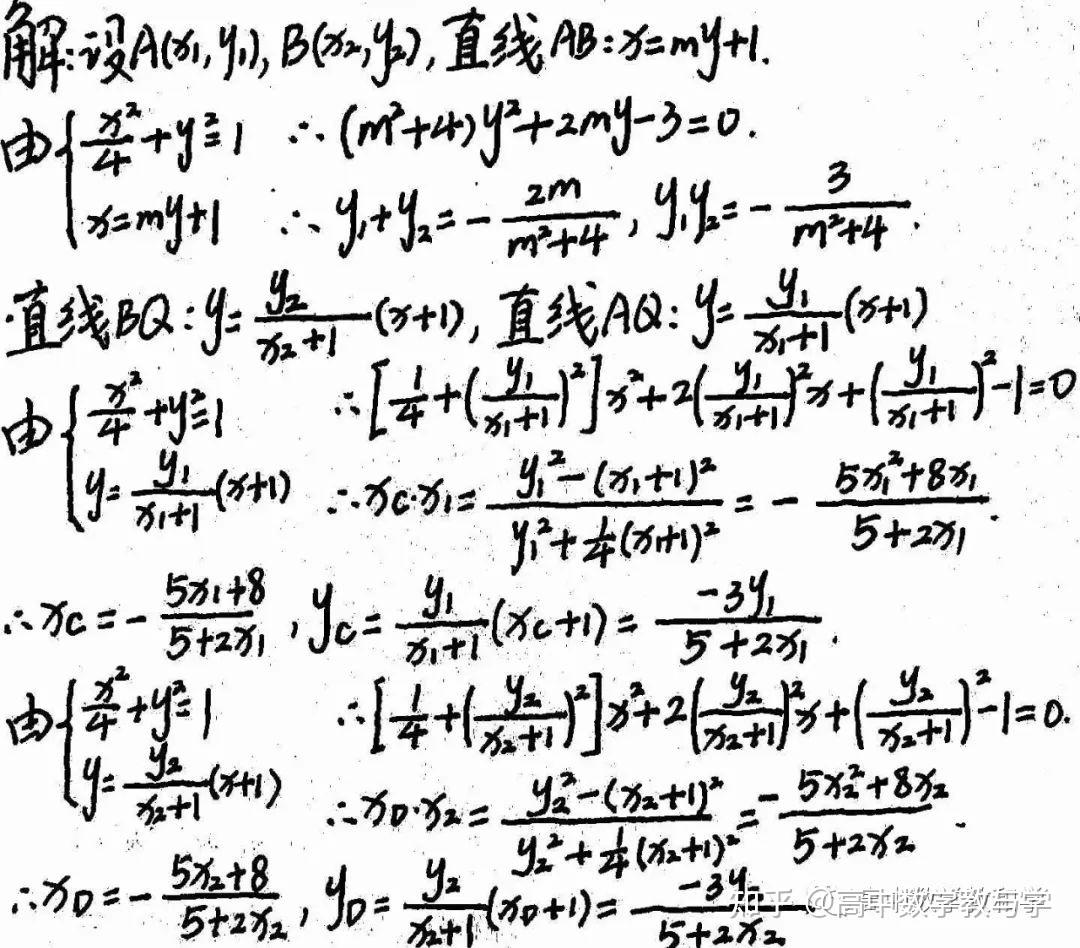 解:设A(x₁,y₁),B(x₂,y₂),直线AB:x=my+1.
由{x²/4+y²=1 ∴(m²+4)y²+2my-3=0.
x=my+1 ∴y₁+y₂=-2m/(m²+4), y₁y₂=-3/(m²+4).
直线BQ:y=y₂/(x₂+1)(x+1), 直线AQ:y=y₁/(x₁+1)(x+1)
由{x²/4+y²=1 ∴[1/4+(y₁/(x₁+1))²]x²+2(y₁/(x₁+1))²x+(y₁/(x₁+1))²-1=0
y=y₁/(x₁+1)(x+1) ∴x_C·x₁=(y₁²-(x₁+1)²)/(y₁²+1/4(x₁+1)²)=-(5x₁²+8x₁)/(5+2x₁).
∴x_C=-(5x₁+8)/(5+2x₁), y_C=y₁/(x₁+1)(x_C+1)=-3y₁/(5+2x₁).
由{x²/4+y²=1 ∴[1/4+(y₂/(x₂+1))²]x²+2(y₂/(x₂+1))²x+(y₂/(x₂+1))²-1=0.
y=y₂/(x₂+1)(x+1) ∴x_D·x₂=(y₂²-(x₂+1)²)/(y₂²+1/4(x₂+1)²)=-(5x₂²+8x₂)/(5+2x₂).
∴x_D=-(5x₂+8)/(5+2x₂), y_D=y₂/(x₂+1)(x_D+1)=-3y/(5+2x₂)
知乎 @高中数学教与学